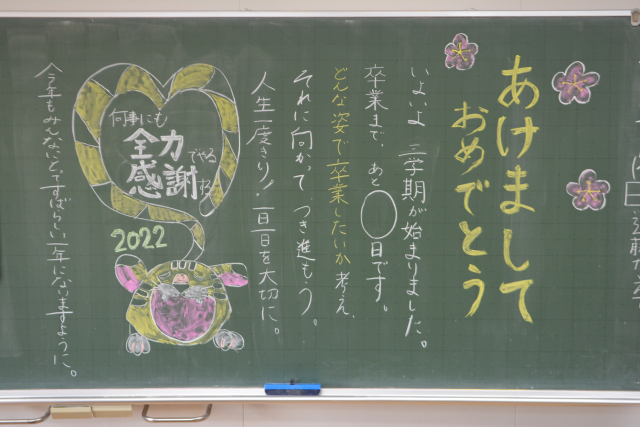 あけまして
おめでとう
いよいよ 三学期が始まりました。
卒業まで、あと◯日です。
どんな姿で卒業したいか考え、
それに向かって つき進もう。
人生一度きり！一日一日を大切に。
何事にも
全力でやる
感謝する
2022
今年もみんなにとってすばらしい一年になりますように。